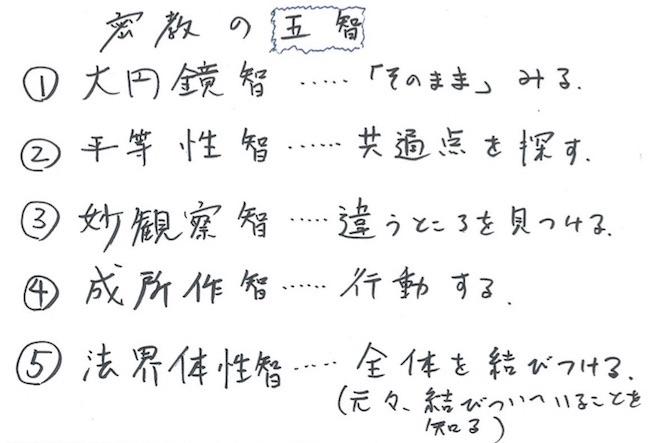 密教の五智
① 大円鏡智 ……「そのまま」みる.
② 平等性智 …… 共通点を探す.
③ 妙観察智 …… 違うところを見つける.
④ 成所作智 …… 行動する.
⑤ 法界体性智 …… 全体を結びつける.
(元々、結びついていることを
知る)